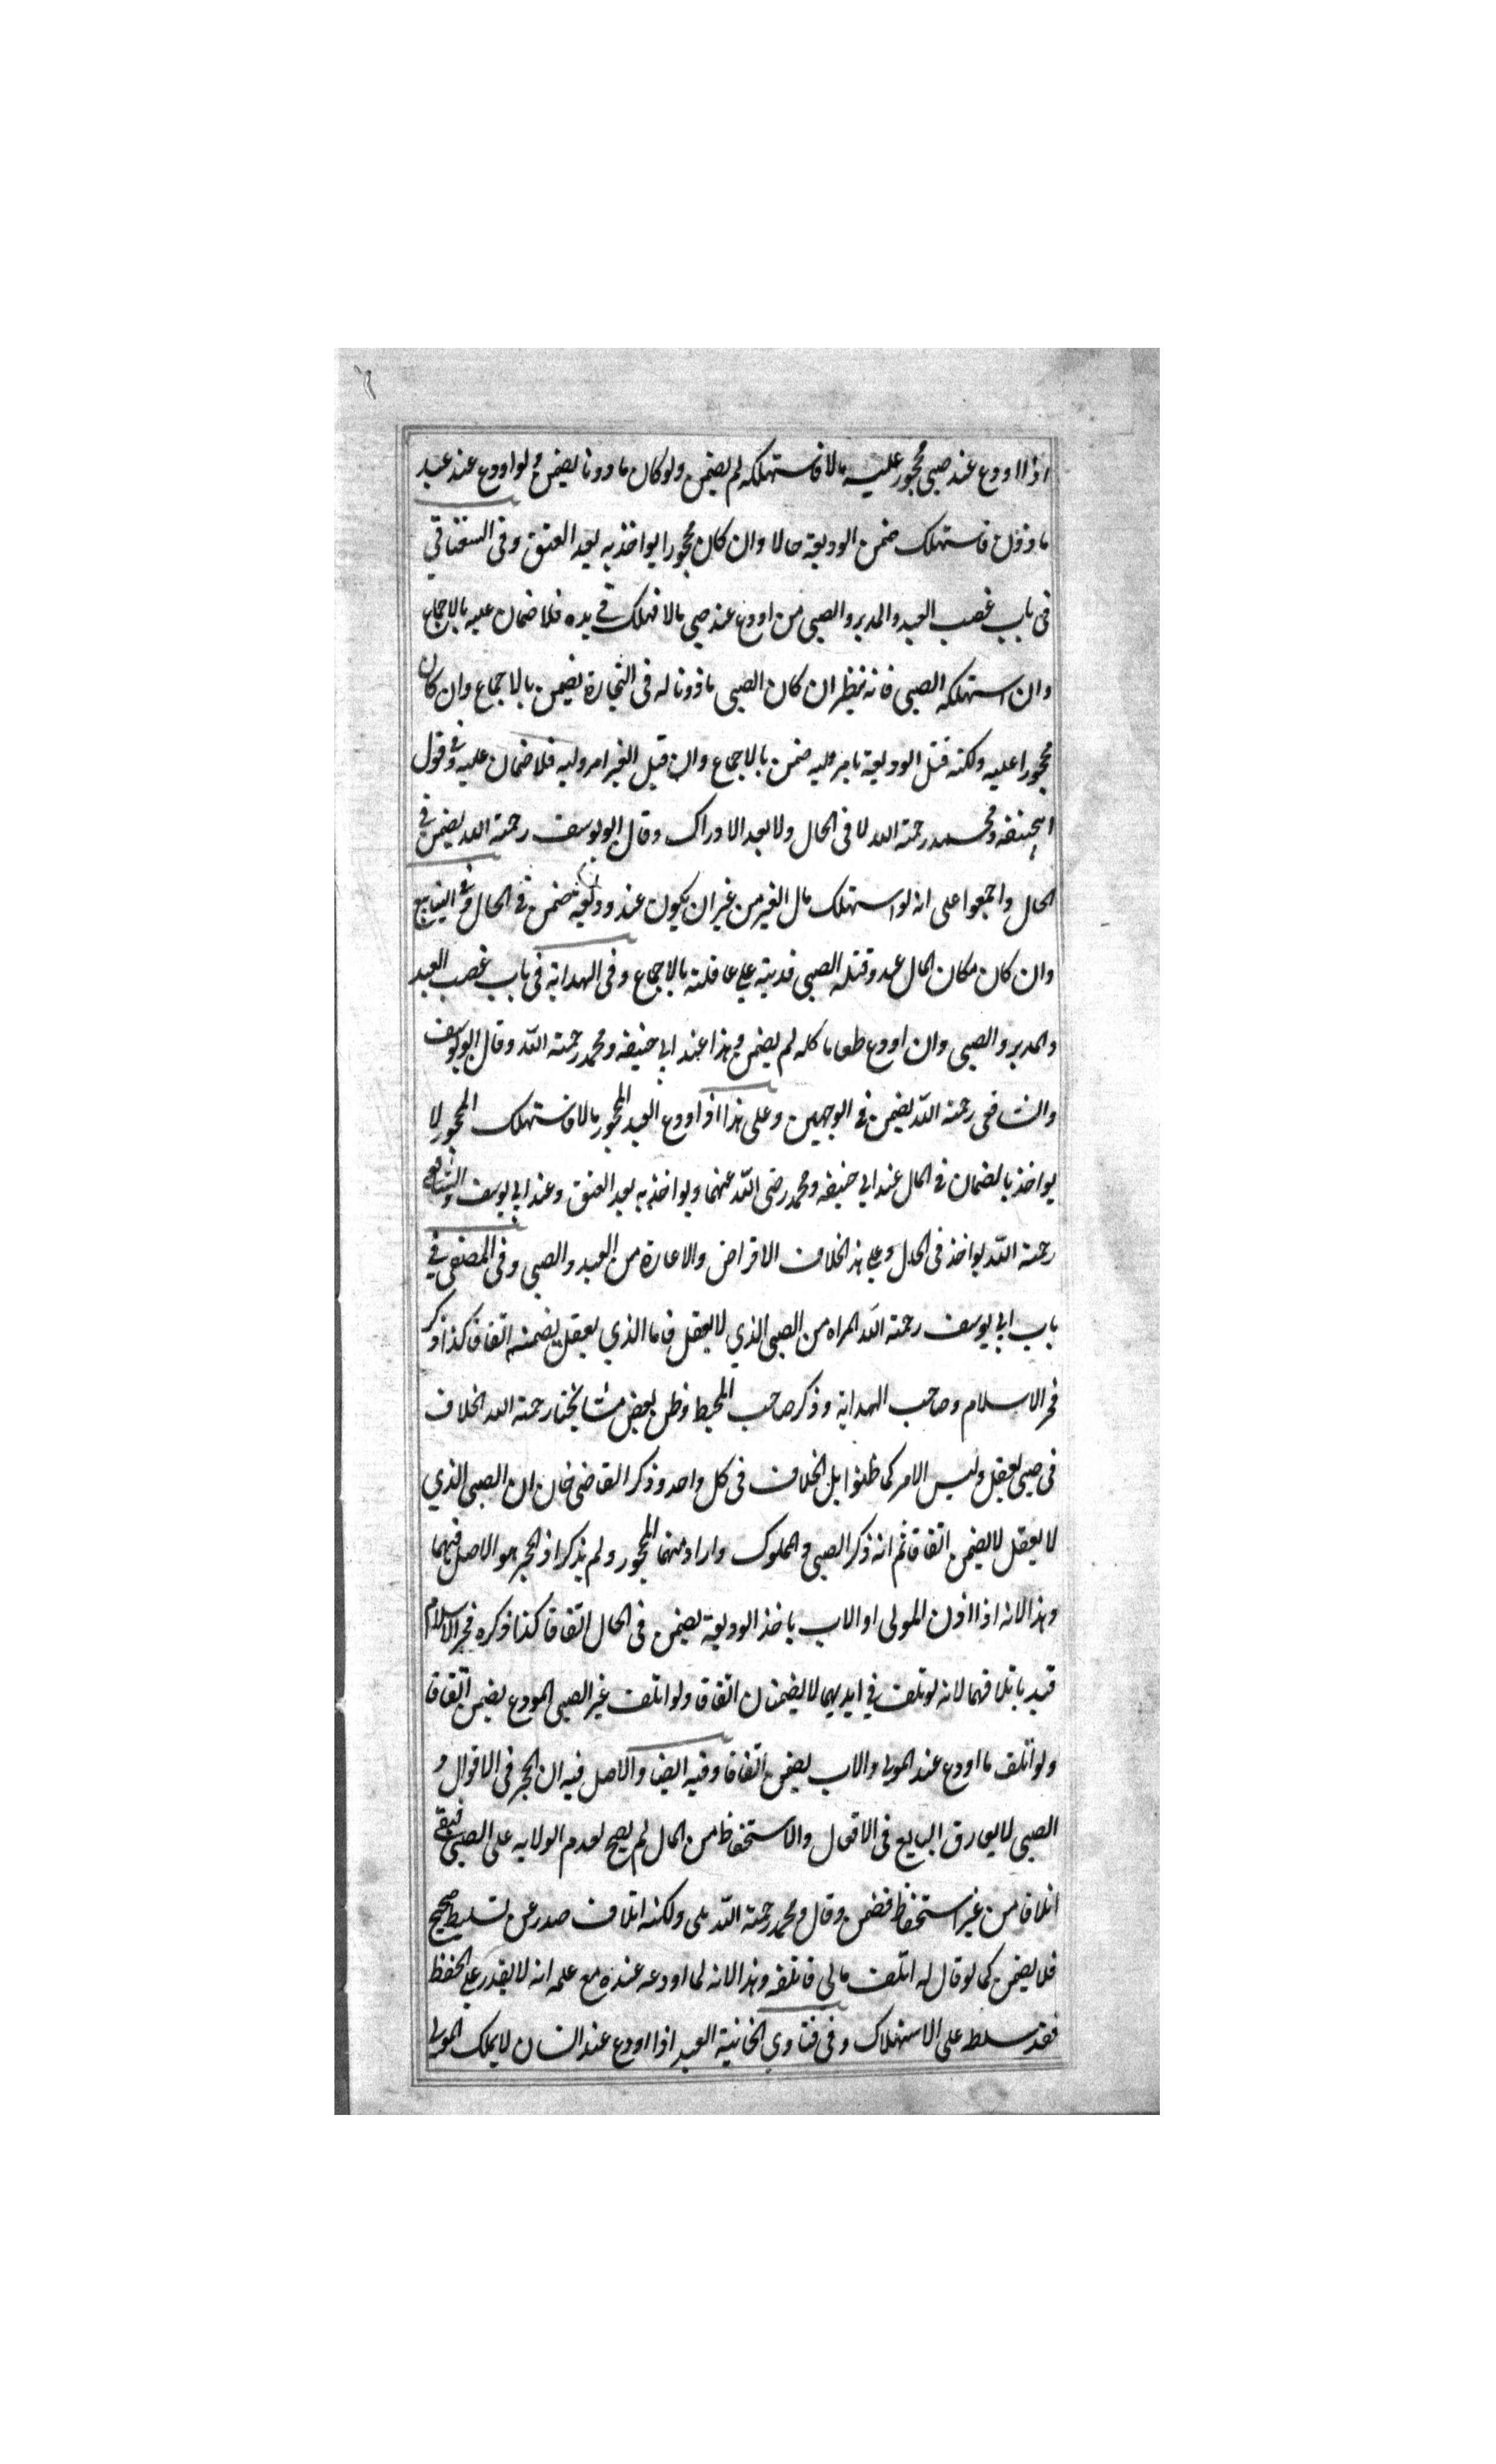 اذا اودع عند صبى محجور عليه مالا فاستهلكه لم يضمن ولو كان ماذونا يضمن ولو اودع عند عبد
ماذون فاستهلك ضمن الوديعة حالا وان كان محجورا يواخذ به بعد العتق وفى السغناقي
فى باب غصب العبد والمدبر والصبى من اودع عند صبى مالا فهلك في يده فلا ضمان عليه بالاجماع
وان استهلكه الصبى فانه ينظر ان كان الصبى ماذونا له فى التجارة يضمن بالاجماع وان كان
محجورا عليه ولكنه قبل الوديعة بامر وليه ضمن بالاجماع وان قبل بغير امر وليه فلا ضمان عليه في قول
ابيحنيفه ومحمد رحمة الله لا فى الحال ولا بعد الادراك وقال ابو يوسف رحمة الله يضمن في
الحال واجمعوا على انه لو استهلك مال الغير من غير ان يكون عنده وديعة يضمن في الحال وفى الينابيع
وان كان مكان المال عبد وقتله الصبى فديته على عاقلته بالاجماع وفى الهداية فى باب غصب العبد
والمدبر والصبى وان اودع طعاما كله لم يضمن وهذا عند ابي حنيفه ومحمد رحمة الله وقال ابو يوسف
والشافعى رحمة الله يضمن في الوجهين وعلى هذا اذا اودع العبد المحجور مالا فاستهلك المحجور لا
يواخذ بالضمان في الحال عند ابي حنيفه ومحمد رضى الله عنهما ويواخذ به بعد العتق وعند ابي يوسف والشافعى
رحمة الله يواخذ فى الحال وعلى هذ الخلاف الاقراض والاعارة من العبد والصبى وفى المصفى في
باب ابي يوسف رحمة الله المراد من الصبى الذي لا يعقل فاما الذي يعقل يضمنه اتفاقا كذا ذكر
فخر الاسلام وصاحب الهداية وذكر صاحب المحيط وظن بعض مشايخنا رحمة الله الخلاف
فى صبى يعقل وليس الامر كما ظنوا بل الخلاف فى كل واحد وذكر القاضى خان ان الصبى الذي
لا يعقل لا يضمن اتفاقا ثم انه ذكر الصبى والمملوك واراد منهما المحجور ولم يذكر اذ الحجر هو الاصل فيهما
وهذا لانه اذا اذن المولى او الاب ياخذ الوديعة يضمن فى الحال اتفاقا كذا ذكره فخر الاسلام
قيد باتلافهما لانه لو تلف في ايديهما لا يضمنان اتفاقا ولو اتلف غير الصبى المودع يضمن اتفاقا
ولو اتلف ما اودع عند المولى والاب يضمن اتفاقا وفيه ايضا والاصل فيه ان الحجر فى الاقوال و
الصبى لا يفارق البايع فى الافعال والاستحفاظ من المال لم يصح لعدم الولايه على الصبى فبقى
اتلافا من غير استحفاظ فضمن وقال ومحمد رحمة الله بلى ولكنه اتلاف صدر عن تسليط صحيح
فلا يضمن كما لو قال له اتلف مالي فاتلفه وهذا لانه لما اودعه عنده مع علمه انه لا يقدر على الحفظ
فقد سلط على الاستهلاك وفى فتاوي الخانية العبد اذا اودع عند انسان لا يملك المولى